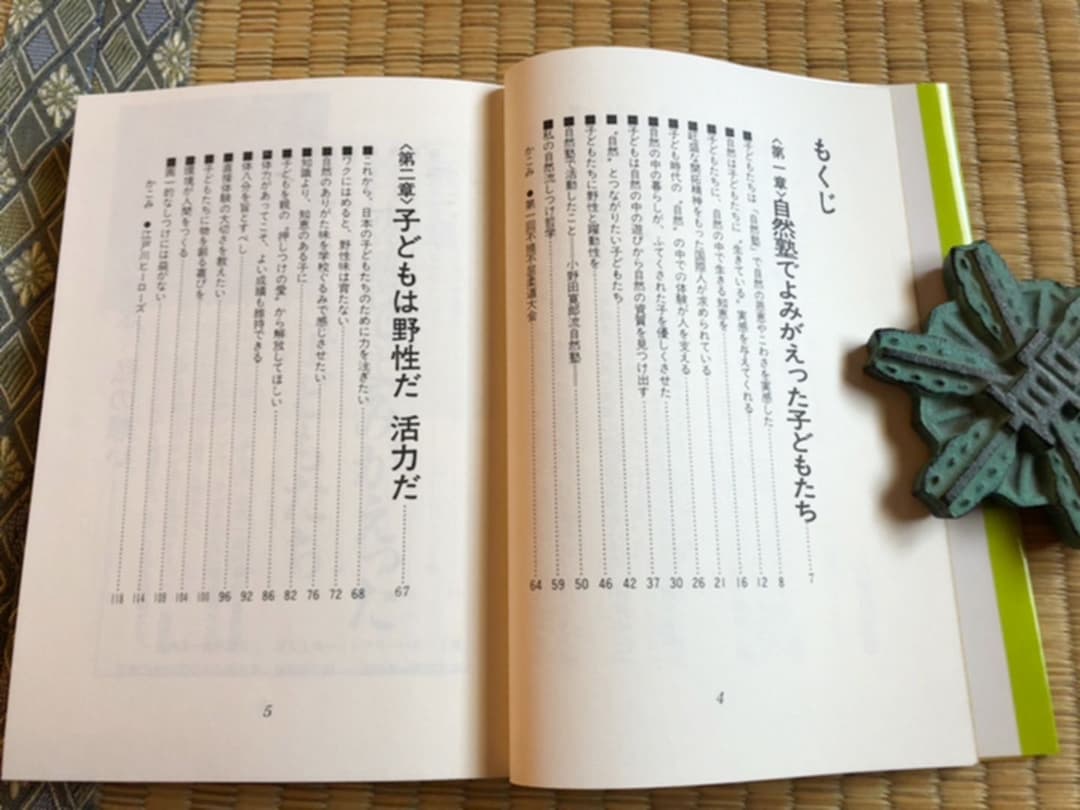 もくじ
〈第一章〉自然塾でよみがえった子どもたち……7
■子どもたちは「自然塾」で自然の恩恵やこわさを実感した……8
■自然は子どもたちに〝生きている〟実感を与えてくれる……12
■子どもたちに、自然の中で生きる知恵を……16
■旺盛な開拓精神をもった国際人が求められている……21
■子ども時代の〝自然〟の中での体験が人を支える……26
■自然の中の暮らしが、ふてくされた子を優しくさせた……30
■子どもは自然の中の遊びから自然の資質を見つけ出す……37
■〝自然〟とつながりたい子どもたち……42
■子どもたちに野性と躍動性を……46
■自然塾で活動したこと――小野田寛郎流自然塾――……50
■私の自然流しつけ哲学……59
かこみ ●第一回不撓不屈柔道大会……64
4
〈第二章〉子どもは野性だ 活力だ……67
■これから、日本の子どもたちのために力を注ぎたい……68
■ワクにはめると、野性味は育たない……72
■自然のありがた味を学校ぐるみで感じさせたい……76
■知識より、知恵のある子に……82
■子どもを親の〝押しつけの愛〟から解放してほしい……86
■体力があってこそ、よい成績も維持できる……92
■体八分を旨とすべし……96
■直接体験の大切さを教えたい……100
■子どもたちに物を創る喜びを……104
■環境が人間をつくる……109
■画一的なしつけには益がない……114
かこみ ●江戸川ヒーローズ……118
5